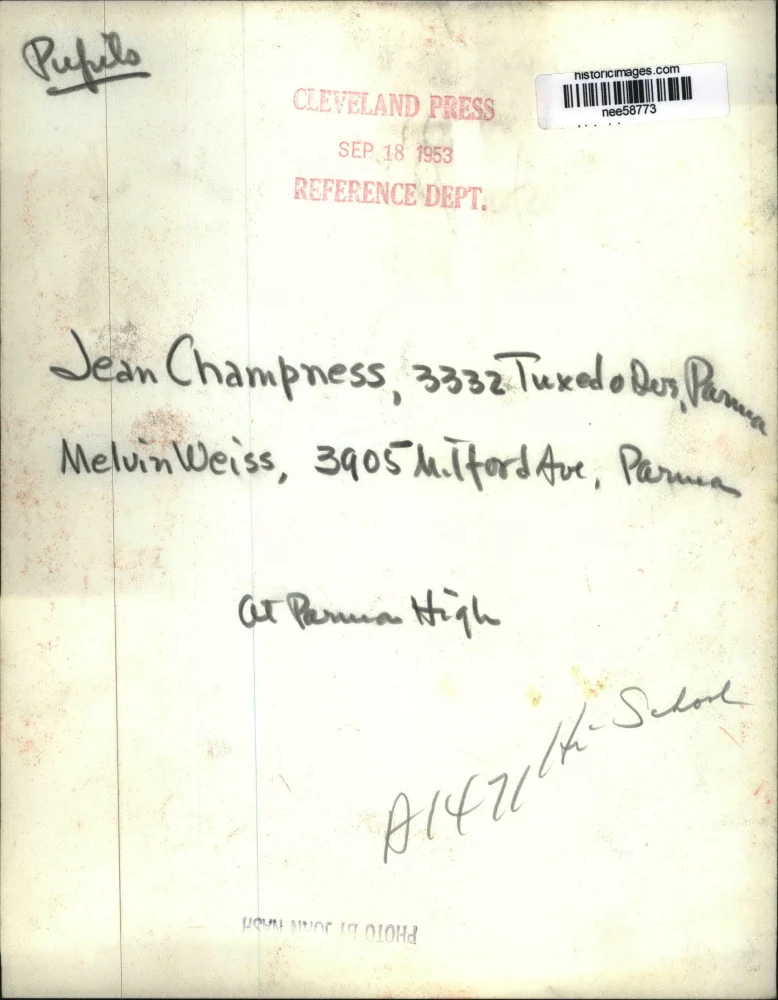 Pupils
historicimages.com
nee58773
CLEVELAND PRESS
SEP 18 1953
REFERENCE DEPT.
Jean Champness, 3332 Tuxedo Ave, Parma
Melvin Weiss, 3905 Milford Ave, Parma
at Parma High
A1471 Hi-School
PHOTO BY JOHN NASH